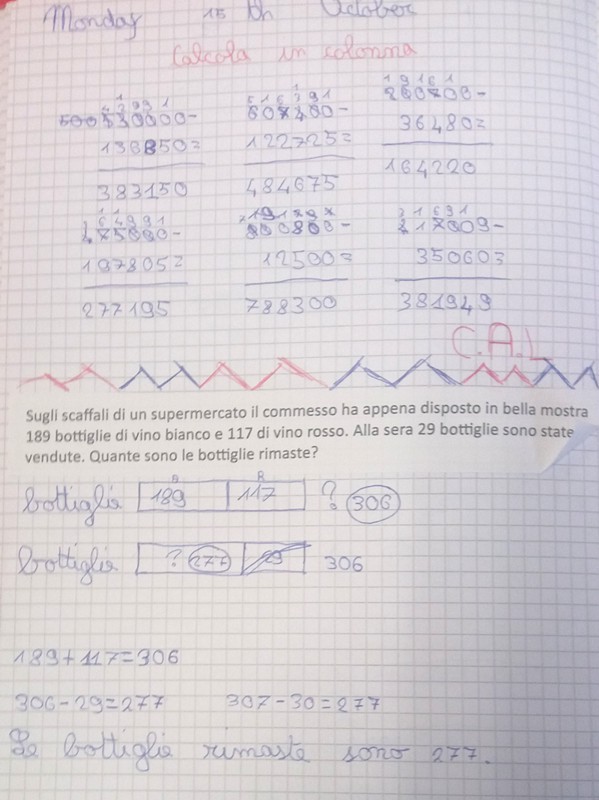 Monday 15 th October
Calcola in colonna
530000- 607400- 200700-
136850= 122725= 36480=
383150 484675 164220
475000- 800800- 417009-
197805= 12500= 35060=
277195 788300 381949
C.A.L
Sugli scaffali di un supermercato il commesso ha appena disposto in bella mostra
189 bottiglie di vino bianco e 117 di vino rosso. Alla sera 29 bottiglie sono state
vendute. Quante sono le bottiglie rimaste?
B R
bottiglie 189 117 ? 306
bottiglie ? 277 29 306
189+117=306
306-29=277 307-30=277
Le bottiglie rimaste sono 277.